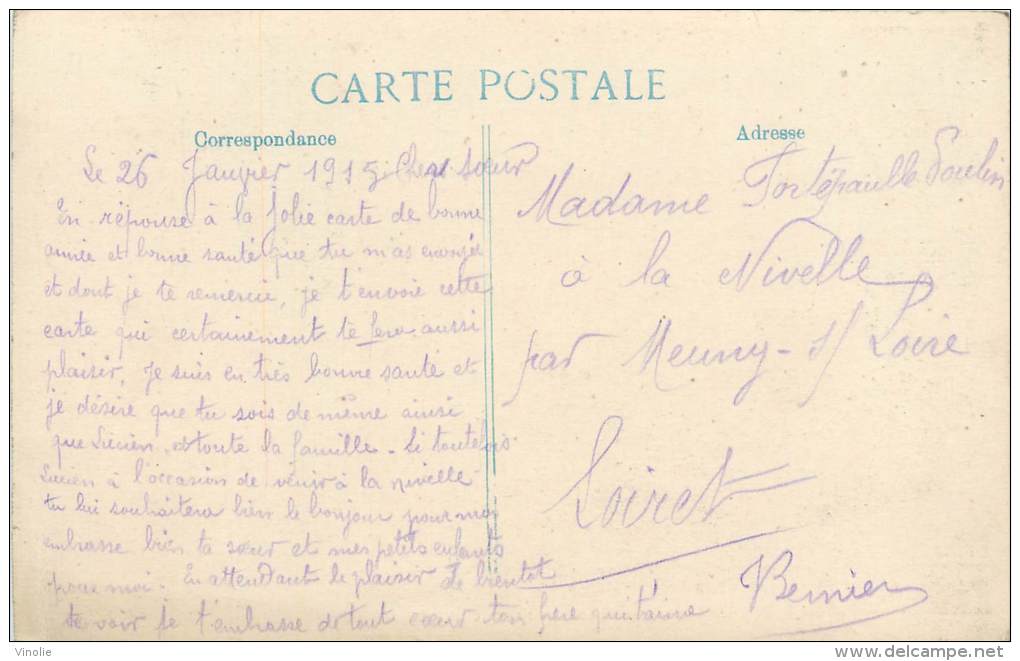 CARTE POSTALE
Correspondance
Adresse
Le 26 Janvier 1915 Cher Sœur
En réponse à la Jolie carte de bonne
année et bonne santé que tu m'as envoyée
et dont je te remercie, je t'envoie cette
carte qui certainement te fera aussi
plaisir, Je suis en très bonne santé et
je désire que tu sois de même ainsi
que Lucien et toute la famille - Si toutefois
Lucien à l'occasion de venir à la nivelle
tu lui souhaitera bien le bonjour pour moi
embrasse bien ta sœur et mes petits enfants
pour moi. En attendant le plaisir de bientot
te voir je t'embrasse de tout cœur ton père qui t'aime
Bernier
Madame
à la Nivelle
par Meung-s/Loire
Loiret
Vinolie
www.delcampe.net